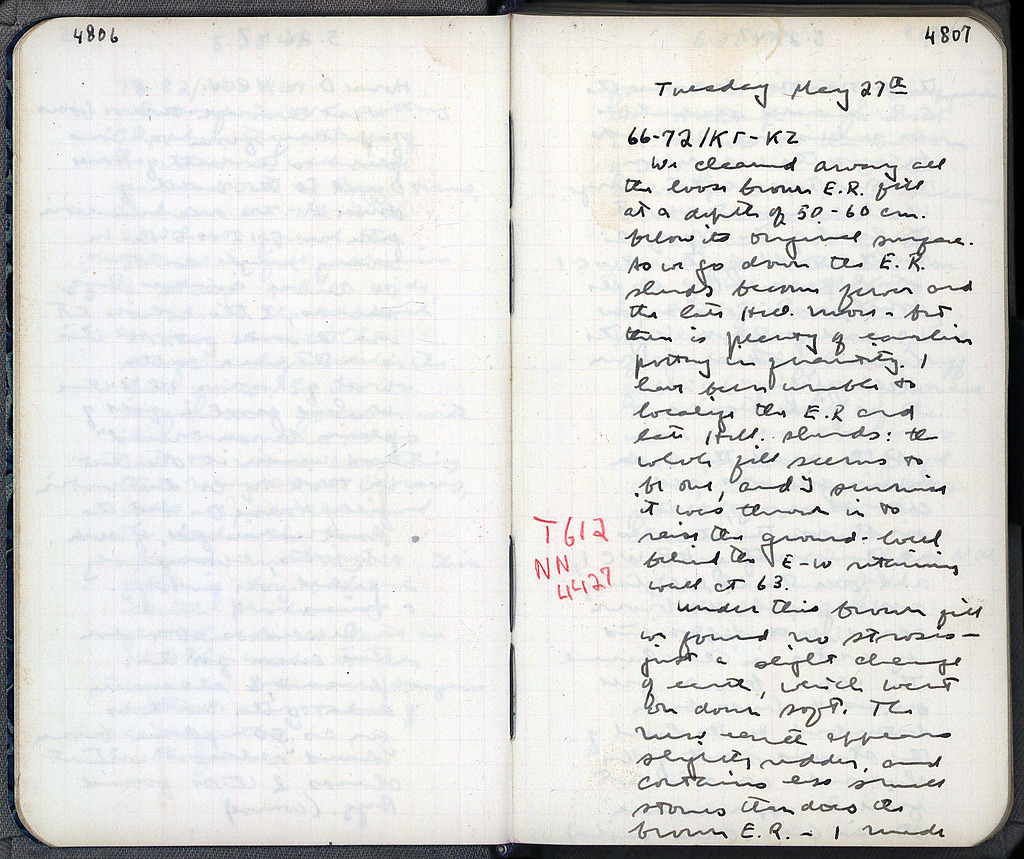 4806
4807
Tuesday May 27th
66-72/KΓ-KZ
We cleaned away all
the loose brown E.R. fill
at a depth of 50-60 cm.
below its original surface.
As we go down the E.R.
sherds become fewer and
the late Hell. more - but
there is plenty of earlier
pottery in quantity. I
have been unable to
localize the E.R and
late Hell. sherds: the
whole fill seems to
be one, and I surmise
it was thrown in to
raise the ground-level
behind the E-W retaining
wall at 63.
T612
NN
4427
Under this brown fill
we found no strosis —
just a slight change
of earth, which went
on down soft. The
new earth appears
slightly redder, and
contains less small
stones than does the
brown E.R. - I made